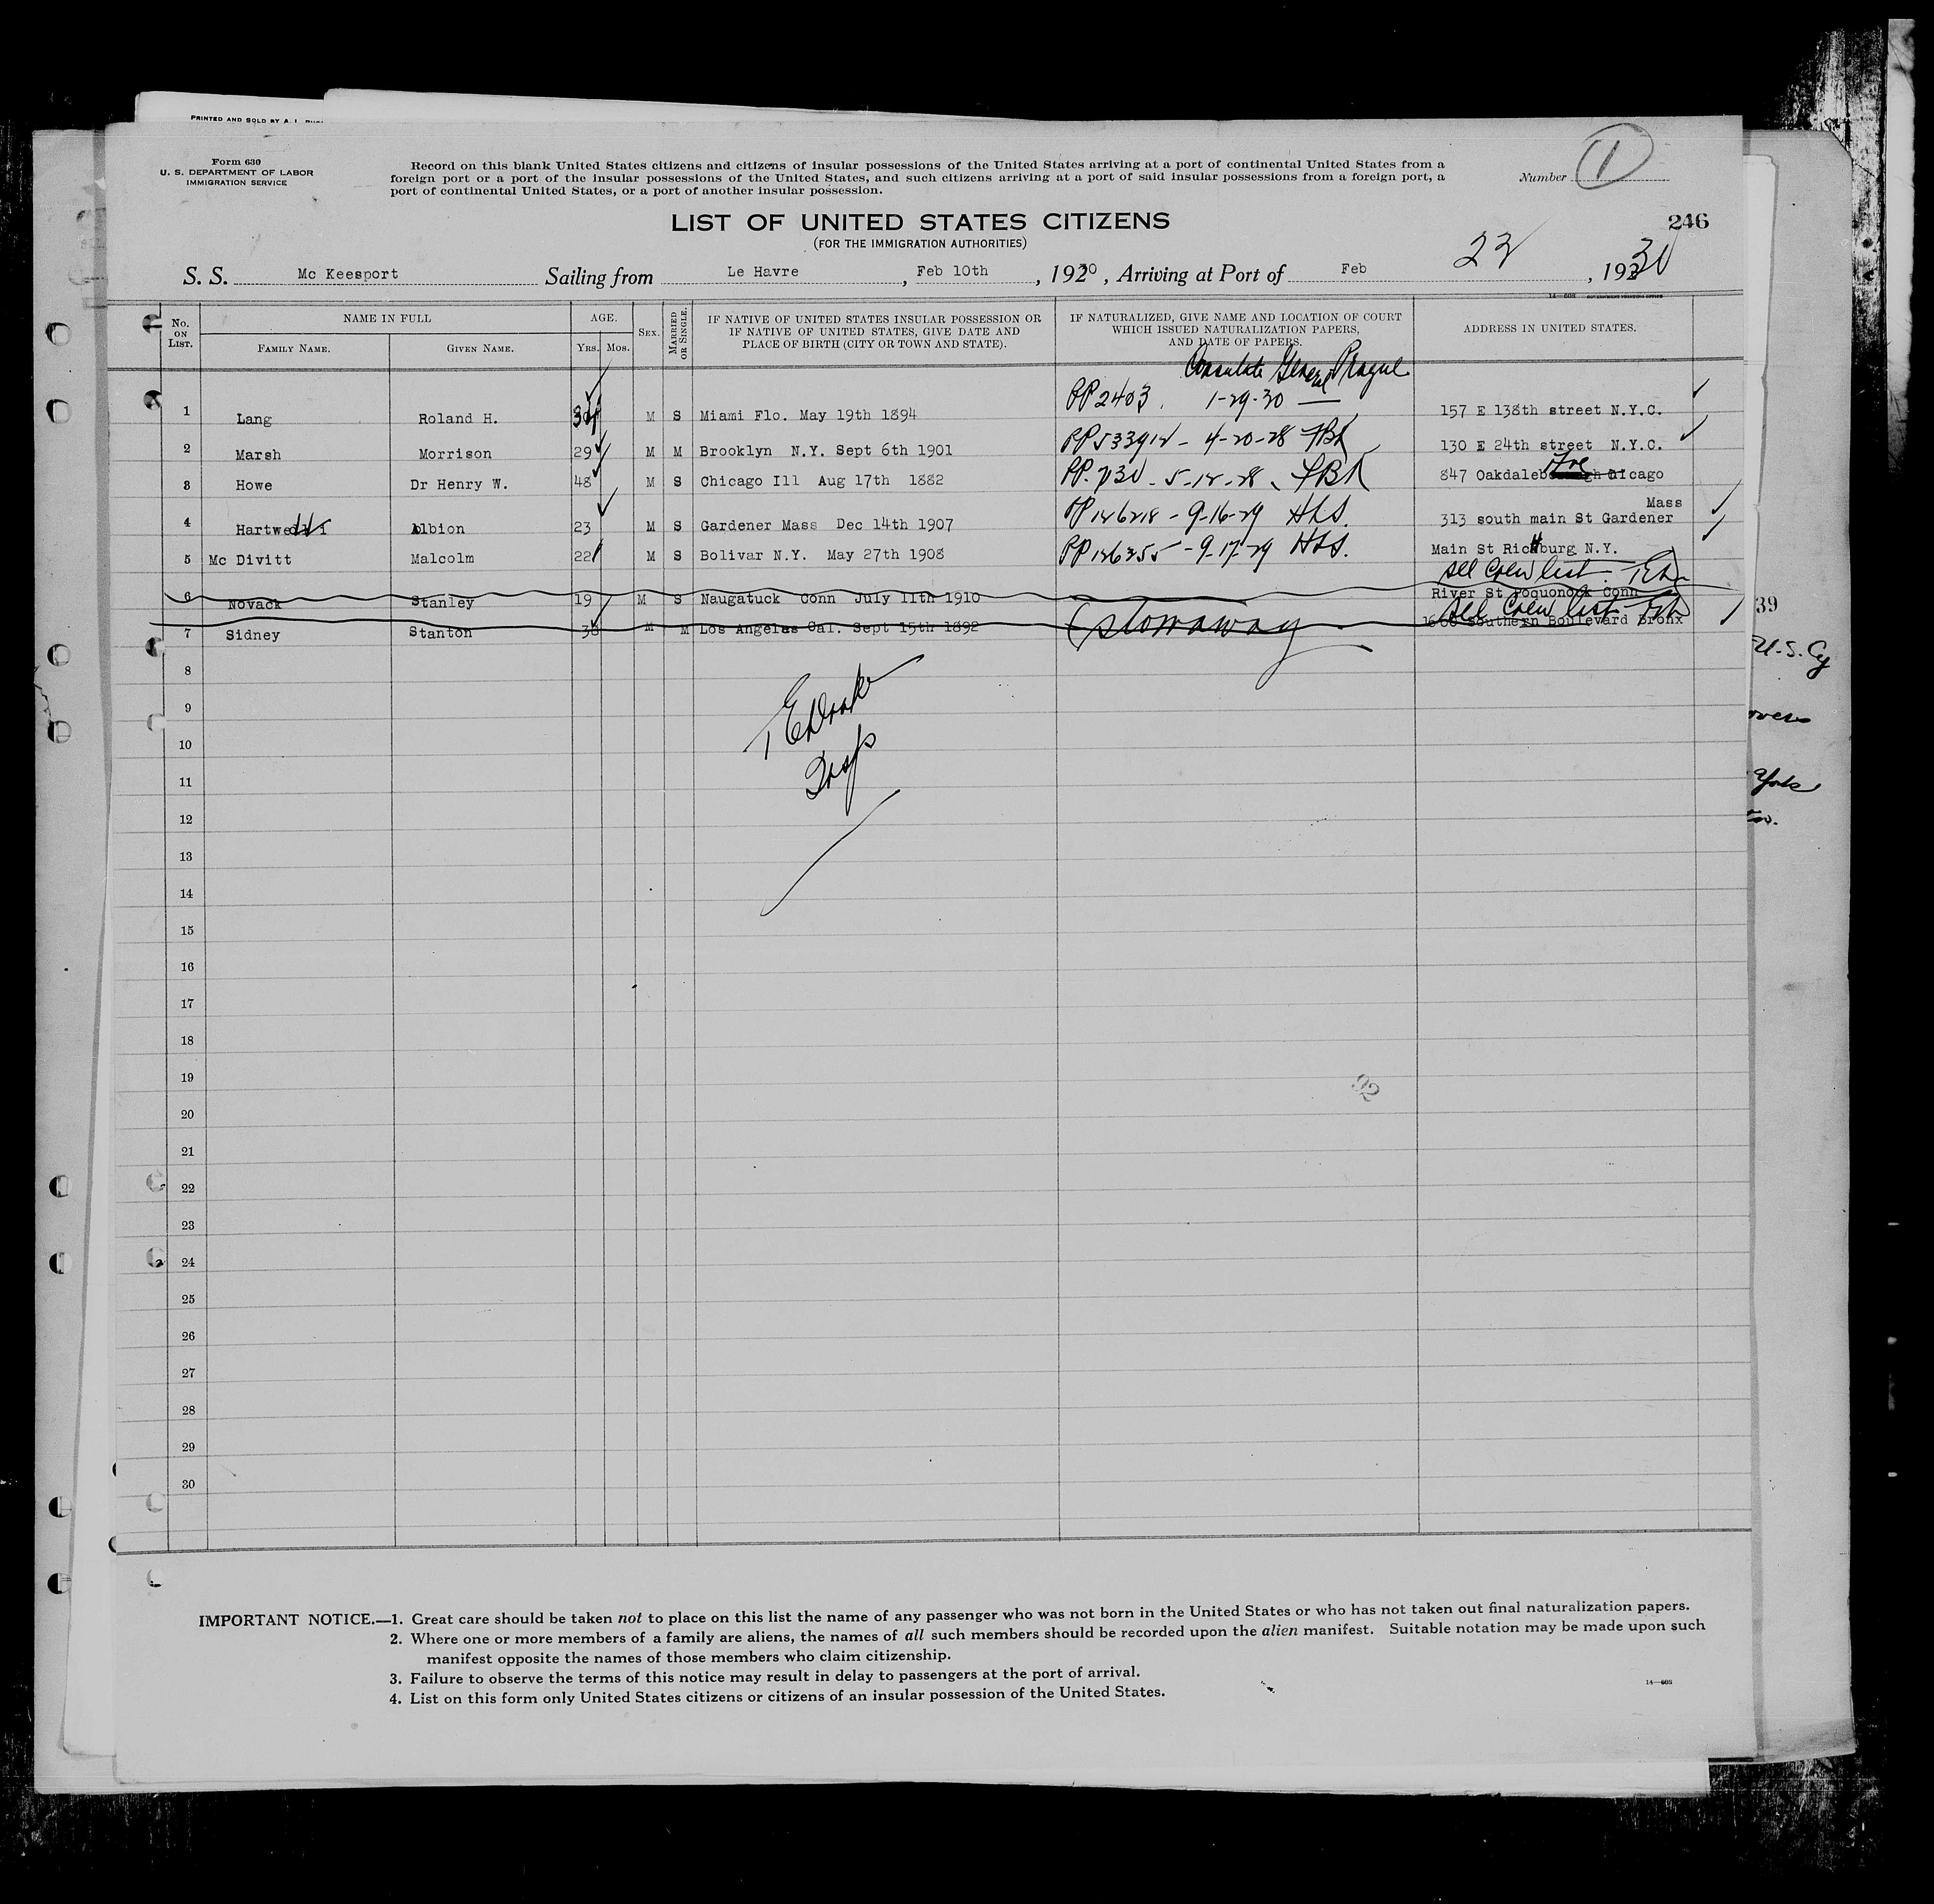 PRINTED AND SOLD BY A. L.
Form 630
U. S. DEPARTMENT OF LABOR
IMMIGRATION SERVICE
Record on this blank United States citizens and citizens of insular possessions of the United States arriving at a port of continental United States from a
foreign port or a port of the insular possessions of the United States, and such citizens arriving at a port of said insular possessions from a foreign port, a
port of continental United States, or a port of another insular possession.
Number 1
LIST OF UNITED STATES CITIZENS
246
(FOR THE IMMIGRATION AUTHORITIES)
S. S. Mc Keesport Sailing from Le Havre, Feb 10th, 1930, Arriving at Port of Feb 22, 1930
No. ON LIST. NAME IN FULL AGE. SEX. MARRIED OR SINGLE. IF NATIVE OF UNITED STATES INSULAR POSSESSION OR IF NATIVE OF UNITED STATES, GIVE DATE AND PLACE OF BIRTH (CITY OR TOWN AND STATE). IF NATURALIZED, GIVE NAME AND LOCATION OF COURT WHICH ISSUED NATURALIZATION PAPERS, AND DATE OF PAPERS. ADDRESS IN UNITED STATES.
FAMILY NAME. GIVEN NAME. Yrs. Mos.
Consulate General Prague
1 Lang Roland H. M S Miami Flo. May 19th 1894 PP 2403. 1-29-30 157 E 138th street N.Y.C.
2 Marsh Morrison 29 M M Brooklyn N.Y. Sept 6th 1901 4-20-28 130 E 24th street N.Y.C.
3 Howe Dr Henry W. 48 M S Chicago Ill Aug 17th 1882 847 Oakdale Ave
4 Hartwell Albion 23 M S Gardener Mass Dec 14th 1907 9-16-29 HLS. 313 south main St Gardener Mass
5 Mc Divitt Malcolm 22 M S Bolivar N.Y. May 27th 1908 9-17-29 HLS. Main St Richburg N.Y.
see Crew list
6 Novack Stanley 19 M S Naugatuck Conn July 11th 1910 River St Poquonock Conn
see Crew list
7 Sidney Stanton 38 M M Los Angeles Cal. Sept 15th 1892 (stowaway Southern Boulevard Bronx
39
U.S. Cy
8
9
10
York
11
12
13
14
15
16
17
18
19
92
20
21
22
23
24
25
26
27
28
29
30
IMPORTANT NOTICE.—1. Great care should be taken not to place on this list the name of any passenger who was not born in the United States or who has not taken out final naturalization papers.
2. Where one or more members of a family are aliens, the names of all such members should be recorded upon the alien manifest. Suitable notation may be made upon such
manifest opposite the names of those members who claim citizenship.
3. Failure to observe the terms of this notice may result in delay to passengers at the port of arrival.
4. List on this form only United States citizens or citizens of an insular possession of the United States.